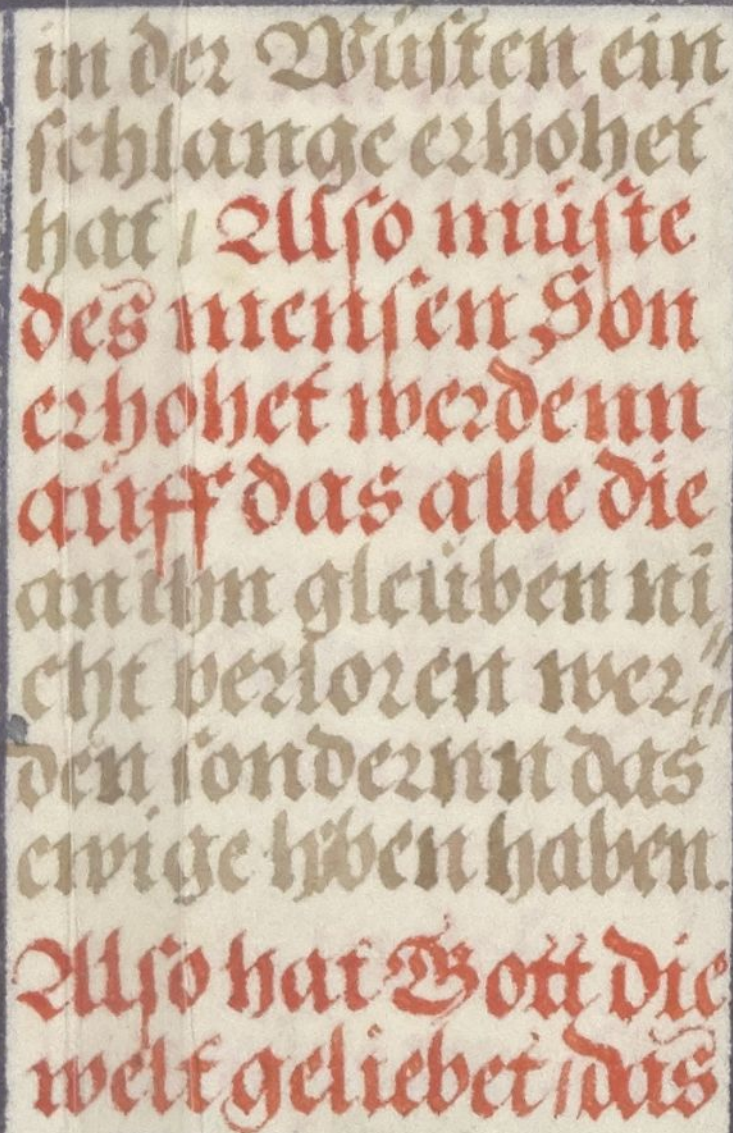 in der Wüsten ein
schlange erhohet
hat / Also müste
des mensen Son
erhohet werdenn
aüff das alle die
an ihn gleüben ni
cht verloren wer⸗
den sondernn das
ewige haben.
Also hat Gott die
welt geliebet / das